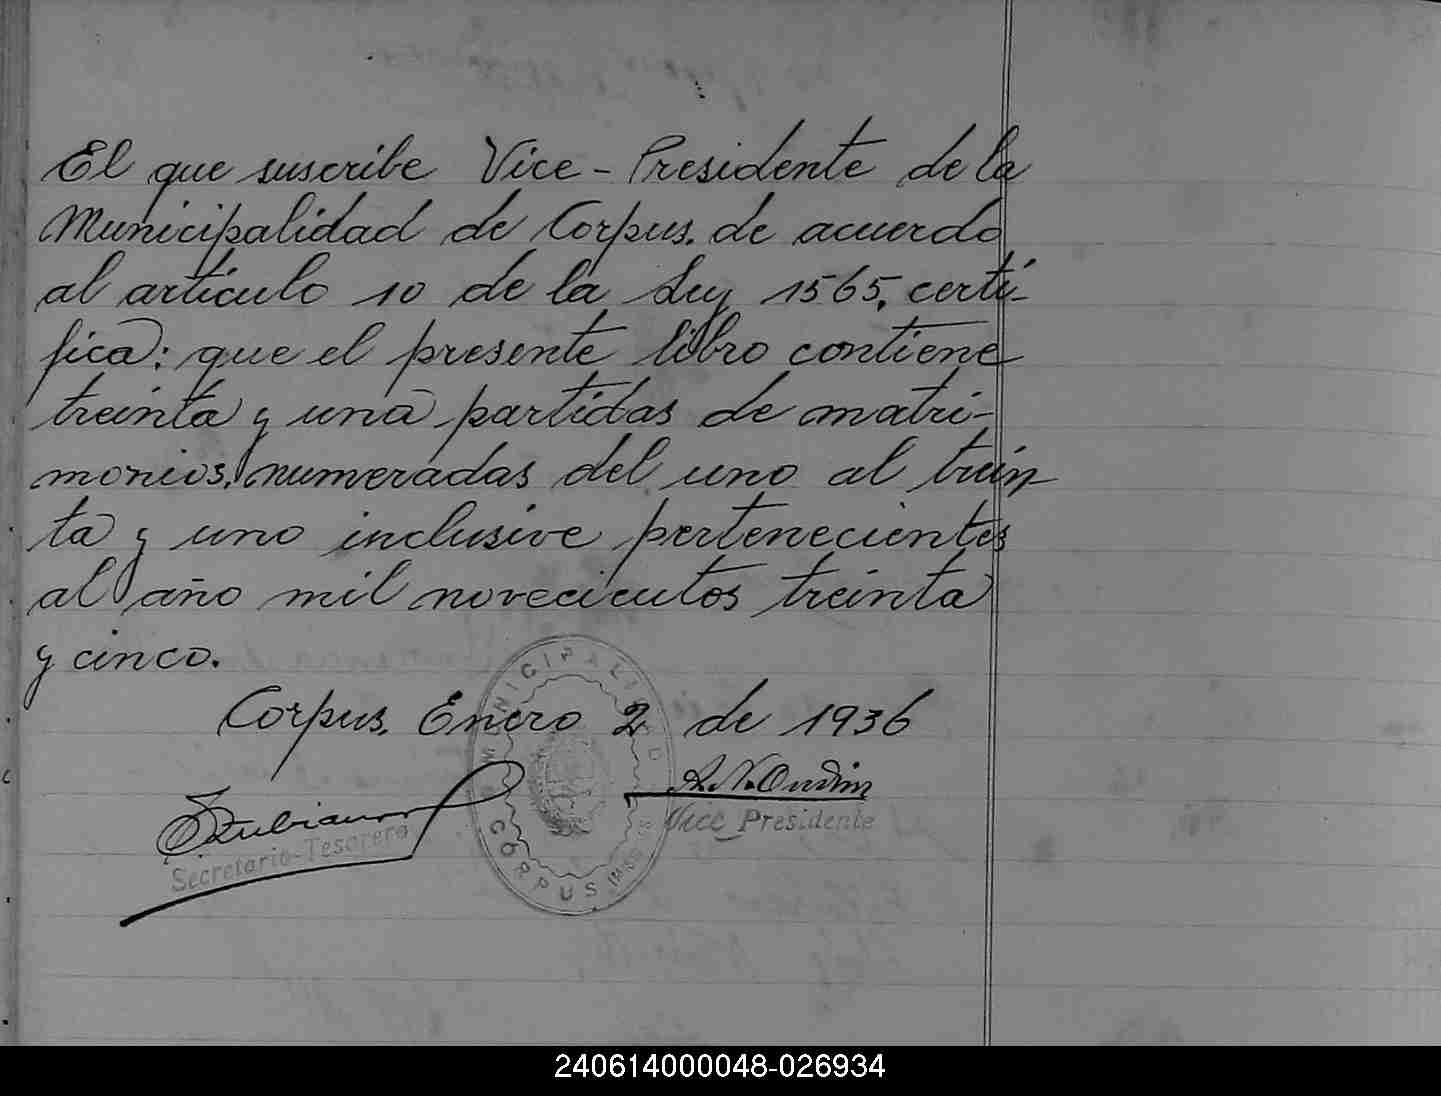 El que suscribe Vice-Presidente de la
Municipalidad de Corpus. de acuerdo
al artículo 10 de la Ley 1565, certi-
fica: que el presente libro contiene
treinta y una partidas de matri-
monios, numeradas del uno al trein
ta y uno inclusive pertenecientes
al año mil novecientos treinta
y cinco.
Corpus, Enero 2 de 1936
Secretario-Tesorero
Vice Presidente
MUNICIPALIDAD
CORPUS
240614000048-026934